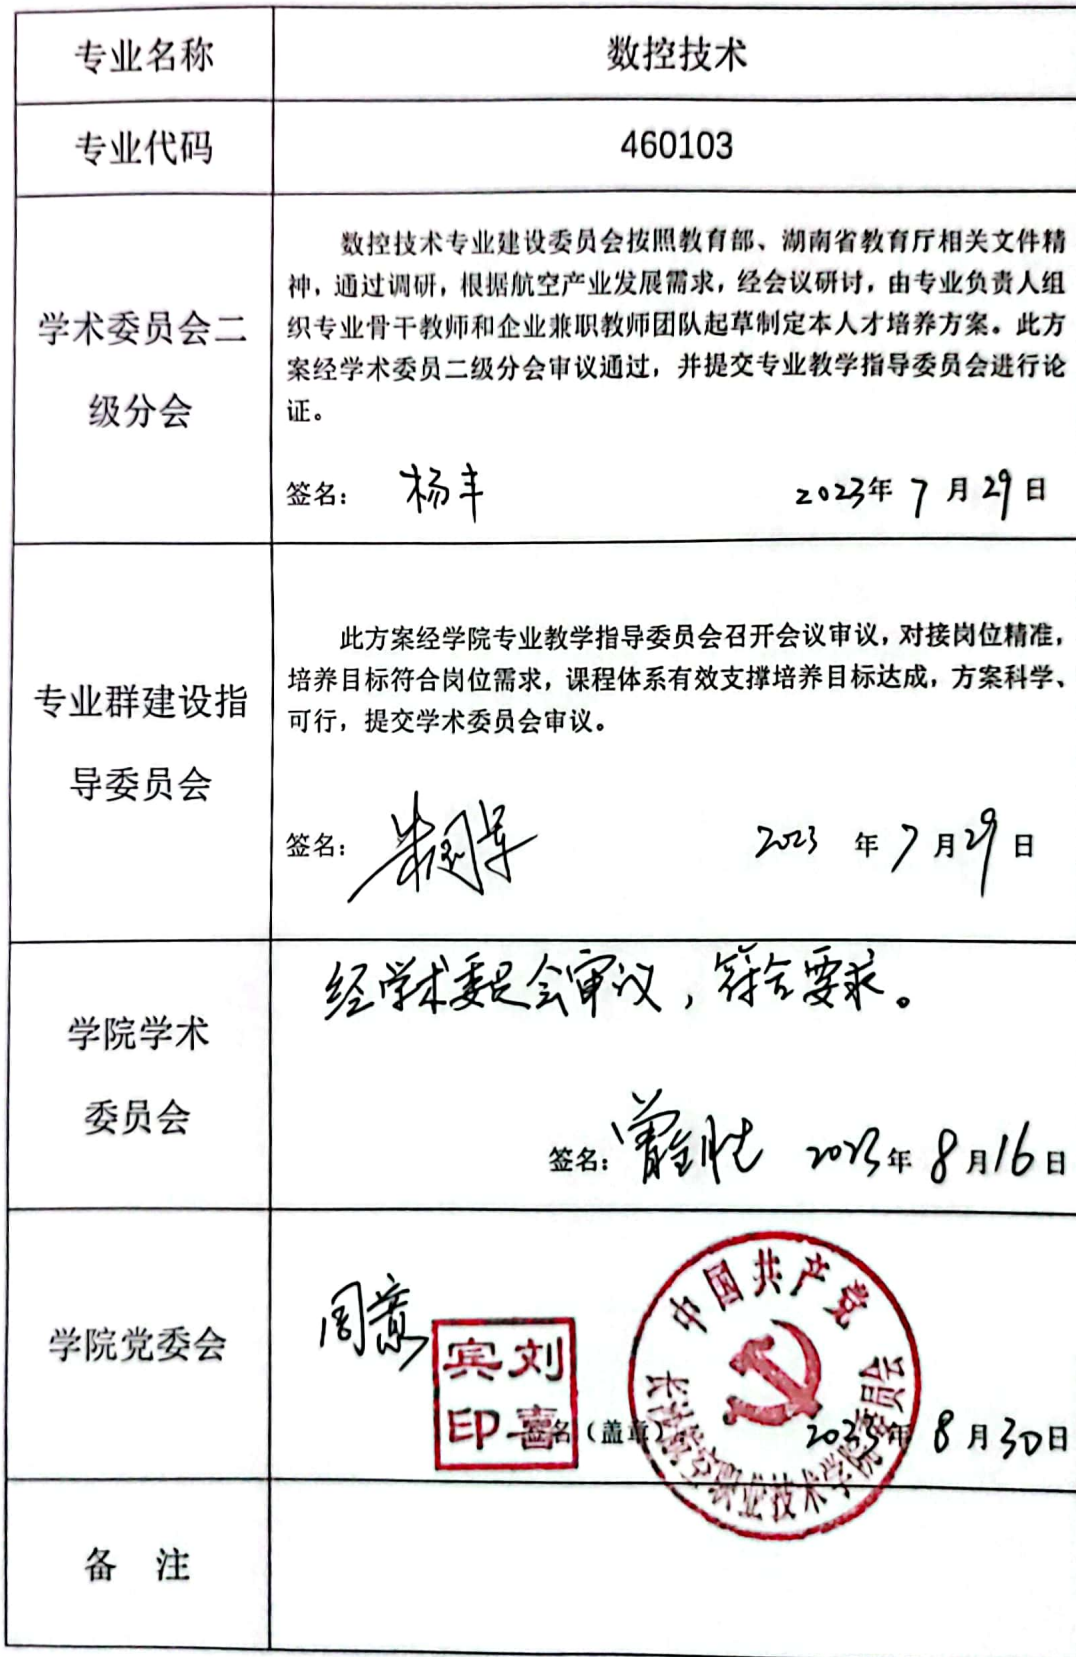 专业名称
数控技术
专业代码
460103
学术委员会二
级分会
数控技术专业建设委员会按照教育部、湖南省教育厅相关文件精
神，通过调研，根据航空产业发展需求，经会议研讨，由专业负责人组
织专业骨干教师和企业兼职教师团队起草制定本人才培养方案。此方
案经学术委员二级分会审议通过，并提交专业教学指导委员会进行论
证。
签名： 杨丰 2023年 7 月 29 日
专业群建设指
导委员会
此方案经学院专业教学指导委员会召开会议审议，对接岗位精准，
培养目标符合岗位需求，课程体系有效支撑培养目标达成，方案科学、
可行，提交学术委员会审议。
签名： 朱国军 2023 年 7 月 29 日
学院学术
委员会
经学术委员会审议，符合要求。
签名： 2023年 8 月 16 日
学院党委会
周
刘喜宾印
中国共产党
长沙航空职业技术学院委员会
签名（盖章） 2023年 8 月 30 日
备 注